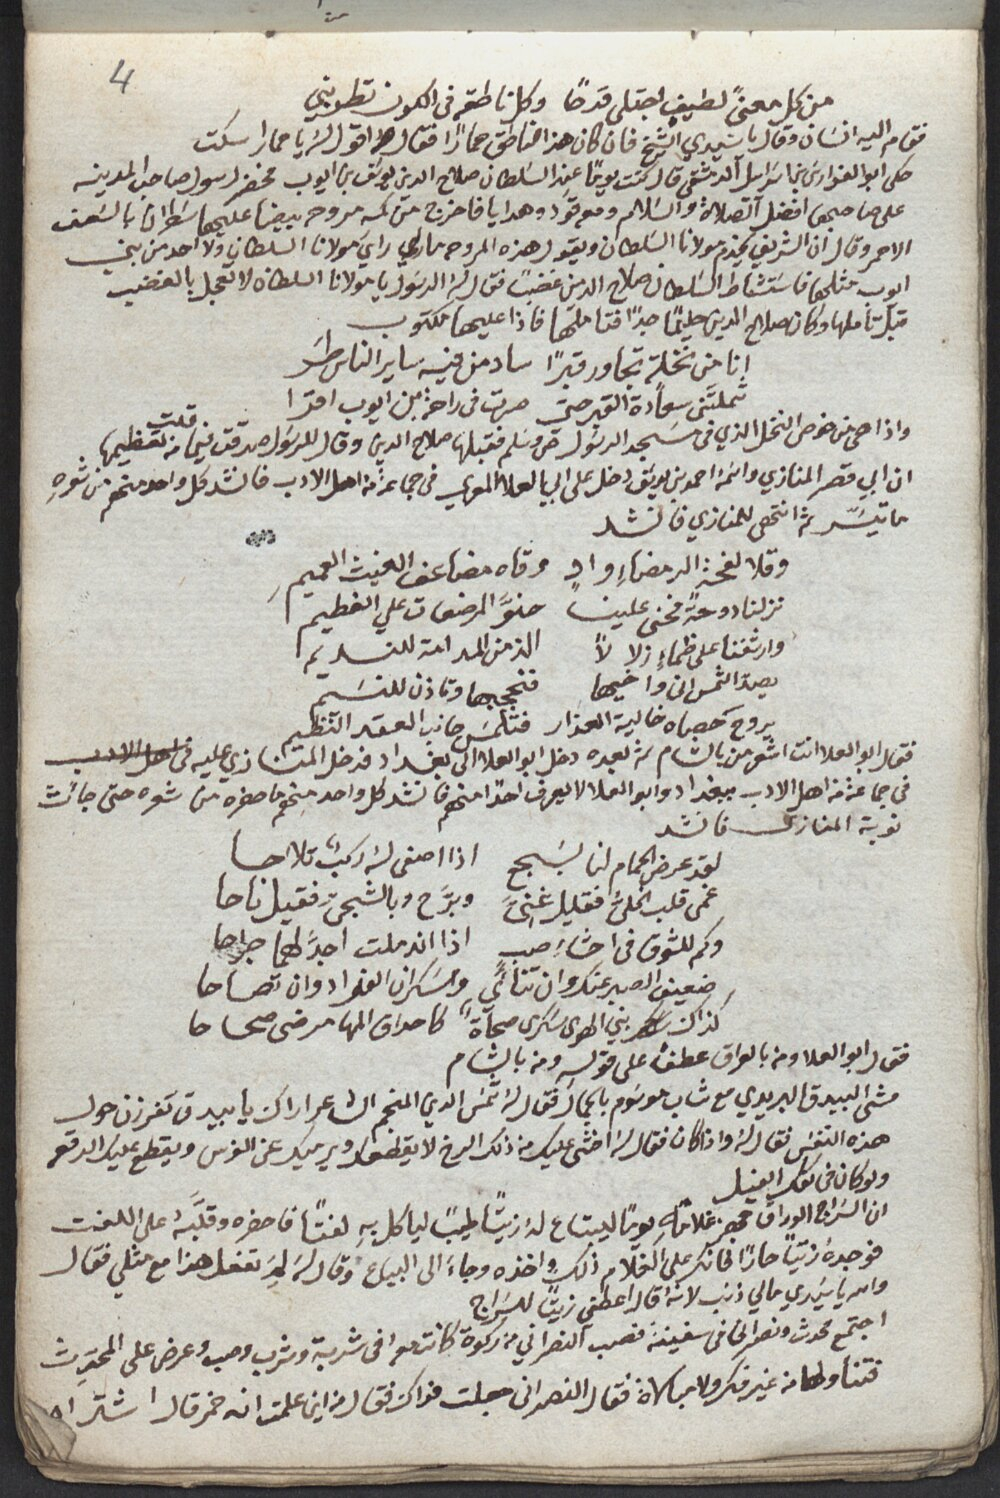 4
من كل معنىً لطيفٍ اجتلي قدحًا وكل ناطقة في الكون تطربني
فقام اليه انسان وقال يا سيدي الشيخ فان كان هذا الناطق حمارًا فقال اقول له يا حمار اسكت
حكى ابو الفوارس بن اسرائيل الدمشقي قال كنت يومًا عند السلطان صلاح الدين يوسف بن ايوب فحضر رسول صاحب المدينه
على صاحبها افضل الصلاة والسلام ومعه قود وهدايا فاخرج من كمه مروحه بيضا عليها سطران بالسعف
الاحمر وقال ان الشريف يخدم مولانا السلطان ويقول هذه المروحه ما راي مولانا السلطان ولا احد من بني
ايوب مثلها فاستشاط السلطان صلاح الدين غضبًا فقال له الرسول يا مولانا السلطان لا تعجل بالغضب
قبل تاملها وكان صلاح الدين حليمًا جدًا فتاملها فاذا عليها مكتوب
انا من نخلة تجاور قبرًا ساد من فيه ساير الناس طرا
شملتني سعادة القبر حتى صرت في راحة بن ايوب اقرا
واذا هي من خوص النخل الذي في مسجد الرسول صلى وسلم فقبلها صلاح الدين وقال للرسول صدقت فيما من تعظيمها قلت
ان ابي قصر المنازي واسمه احمد بن يوسف دخل على ابي العلا المعري في جماعة من اهل الادب فانشد كل واحد منهم من شعره
ما تيسر ثم انتهى للمنازي فانشد
وقلا لفحة الرمضاءِ وادٍ وقاه مضاعف الغيث العميمِ
نزلنا دوحةً فحنى علينا حنوَّ المرضعات علي الفطيم
وارشفنا على ظماءٍ زلالاً الذ من المدامة للنديم
يصد الشمس انى واخيها فنحجبها وتاذن للنسيم
يروح حصاه خالية العذار فتلمس جانب العقد النظيم
فقال ابو العلا انت اشعر من بالشام ثم بعده دخل ابو العلا الى بغداد فدخل المنازي عليه في اهل الادب
في جماعة من اهل الادب ببغداد وابو العلا لا يعرف احدًا منهم فانشد كل واحد منهم ما حضره من شعره حتى جائت
نوبة المنازي فانشد
لقد عرض الحمام لنا بسجع اذا اصغى له ركب تلاحا
غمى قلب الخليّ فقليل غنىً وبرَّح وبالشجيّ فقيل ناحا
وكم للشوق في احشاءِ صب اذا اندملت اجدَّ لها جراحا
ضعيف الصبر عنك وان تنائي وسكران الفواد وان تصاحا
كذاك بني الهوى سكرى صحاةً كاحداق المها مرضى صحاحا
فقال ابو العلا ومن بالعراق عطف على قوله ومن بالشام
مشى البيدق البريدي مع شاب موسوم بالجمال فقال له شمس الدين المنجم الشاعر اراك يا بيدق تفرزن حول
هذه النفس فقال له واذا كان فقال له اخشى عليك من ذلك الرخ لا يقطعك ويرميك عن الفرس ويقطع عليك الرقعه
ولو كان في الفيل
ان السراج الوراق جهز غلامًا له يومًا ليبتاع له زيتًا طيبًا لياكل به لفتًا فاحضره وقلَّبه على اللفت
فوجده زيتًا حارًا فانكر على الغلام ذلك واخذه وجاء الى البياع وقال له لِمَ تفعل هذا مع مثلي فقال
والله يا سيدي مالي ذنب لانه قال اعطني زيتًا للسراج
اجتمع محدث ونصراني في سفينة فصب النصراني من ركوة كانت معه في شربة وشرب وصب وعرض على المحدث
فتناولها من غير فكر ولا مبالاة فقال النصراني جعلت فداك فقال من اين علمت انه خمر قال اشتراه